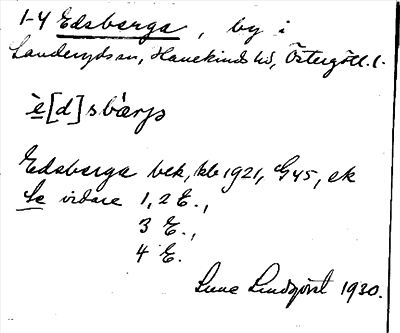 1-4 Edsberga, by i
Landeryds sn, Hanekinds hd, Östergötl. l.
è[d]sbàrja
Edsberga bek, kb 1921, G45, ek
Se vidare 1,2 E.,
3 E.,
4 E.
Sune Lindqvist 1930.